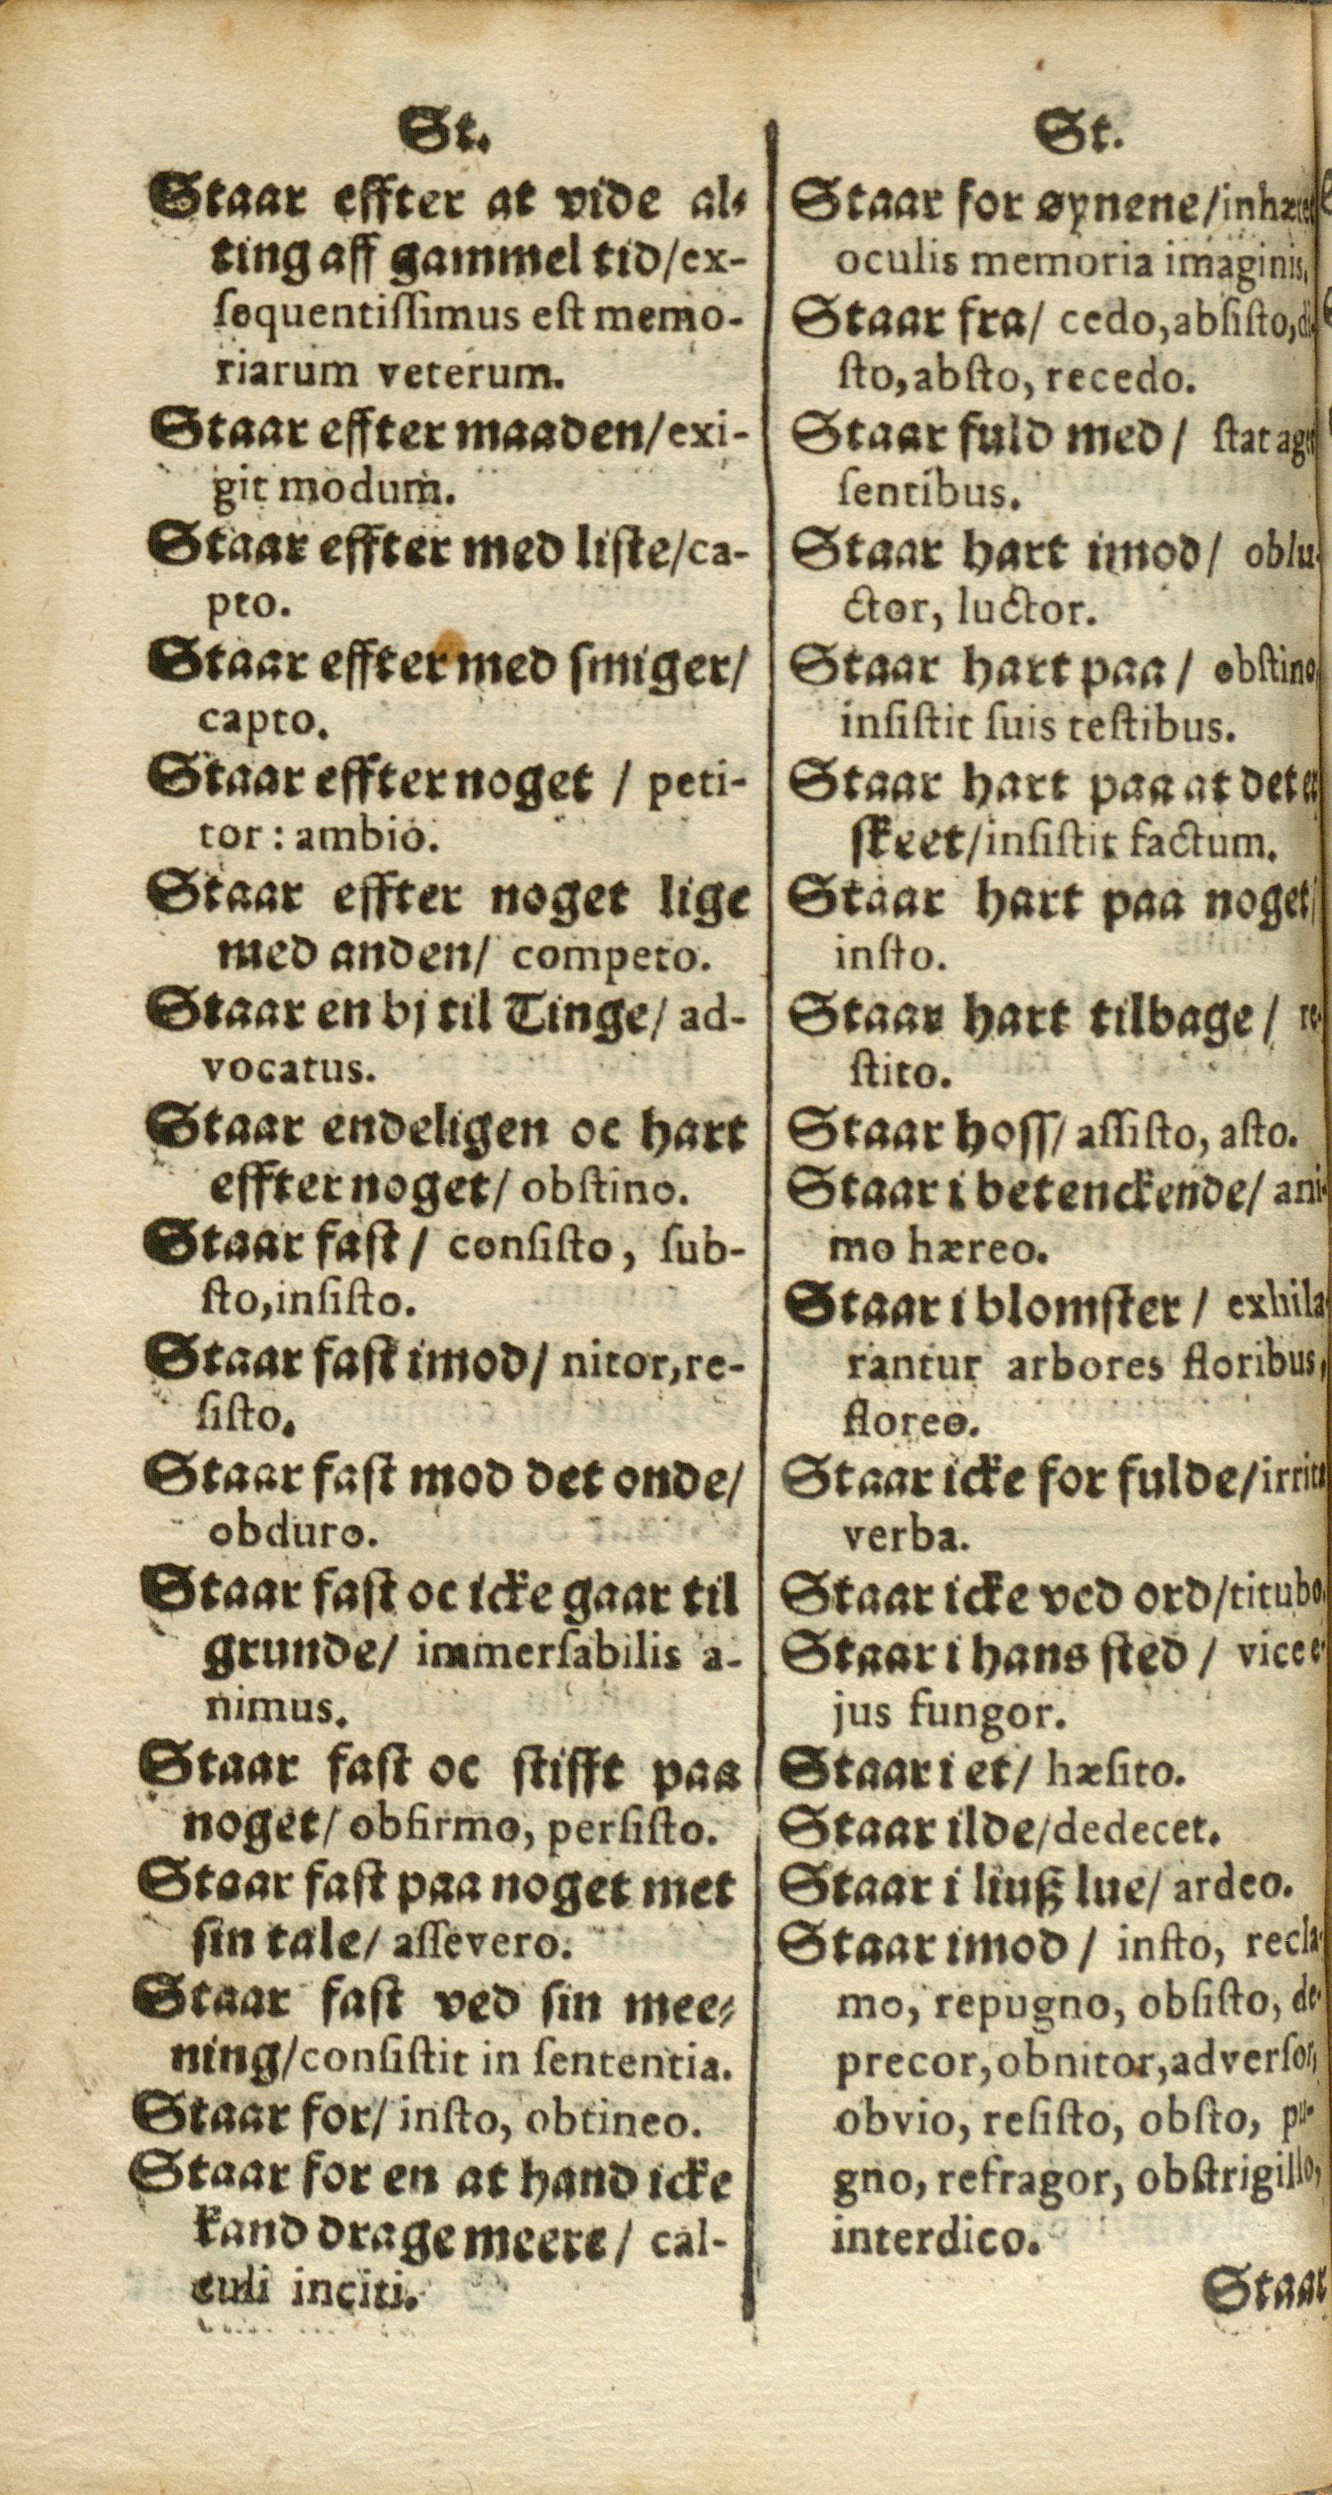 St.
Staar effter at vide al-
ting aff gammel tid/ex-
ſequentiſſimus eſt memo-
riarum veterum.
Staar effter maaden/exi-
git modum.
Staar effter med liſte/ca-
pto.
Staar effter med ſmiger/
capto.
Staar effter noget / peti-
tor: ambio.
Staar effter noget lige
med anden/ competo.
Staar en bj til Tinge/ ad-
vocatus.
Staar endeligen oc hart
effter noget/ obſtino.
Staar faſt / conſiſto, ſub-
ſto,inſiſto.
Staar faſt imod/ nitor,re-
ſiſto.
Staar faſt mod det onde/
obduro.
Staar faſt oc icke gaar til
grunde/ immerſabilis a-
nimus.
Staar faſt oc ſtifft paa
noget/ obfirmo, perſiſto.
Staar faſt paa noget met
ſin tale/ aſſevero.
Staar faſt ved ſin mee-
ning/conſiſtit in ſententia.
Staar for/ inſto, obtineo.
Staar for en at hand icke
kand drage meere/ cal-
culi inciti.
St.
Staar for øynene/
oculis memoria imaginis.
Staar fra/ cedo,abſiſto,di-
ſto,abſto, recedo.
Staar fuld med / ſtat
ſentibus.
Staar hart imod/ oblu-
ctor, luctor.
Staar hart paa / obſtino,
inſiſtit ſuis teſtibus.
Staar hart paa at det er
ſkeet/inſiſtit factum.
Staar hart paa noget/
inſto.
Staar hart tilbage / re-
ſtito.
Staar hoſſ/ aſſiſto, aſto.
Staar i betenckende/ ani-
mo hæreo.
Staar i blomſter / exhila-
rantur arbores floribus,
floreo.
Staar icke for fulde/irrita
verba.
Staar icke ved ord/titubo.
Staar i hans ſted / vice e-
jus fungor.
Staar i et/ hæſito.
Staar ilde/dedecet.
Staar i liuß lue/ ardeo.
Staar imod / inſto, recla-
mo, repugno, obſiſto, de-
precor,obnitor,adverſor,
obvio, reſiſto, obſto, pu-
gno, refragor, obſtrigillo,
interdico.
Staar